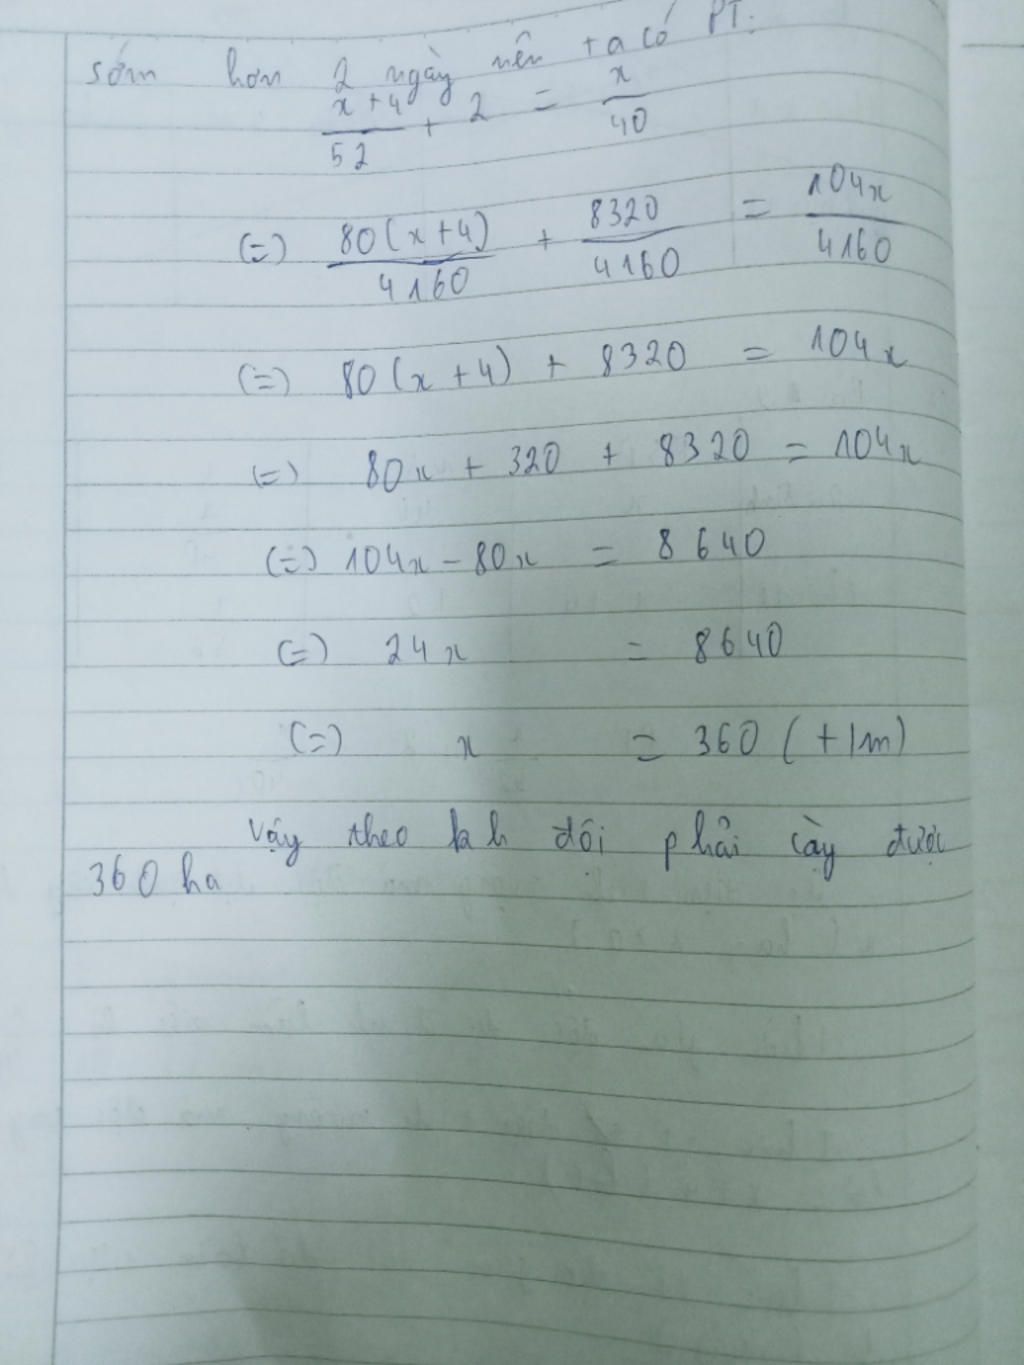 sớm hơn 2 ngày nên ta có PT:
(x+4)/52 + 2 = x/40
(=) 80(x+4)/4160 + 8320/4160 = 104x/4160
(=) 80(x+4) + 8320 = 104x
(=) 80x + 320 + 8320 = 104x
(=) 104x - 80x = 8640
(=) 24x = 8640
(=) x = 360 (t/m)
Vậy theo kh đội phải cày được
360 ha